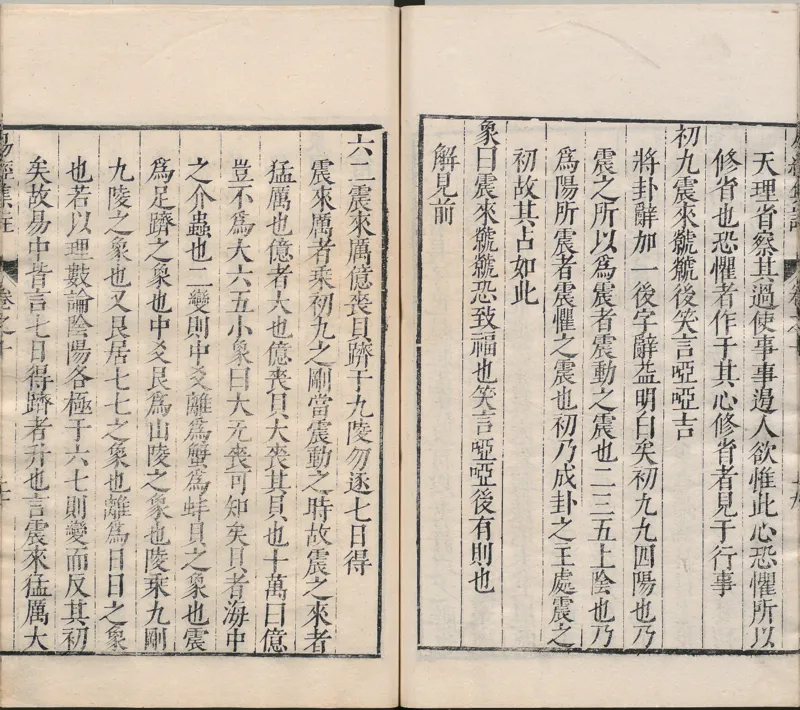 天理省察其過使事事遏人欲惟此心恐懼所以
修省也恐懼者作于其心修省者見于行事
初九震來虩虩後笑言啞啞吉
將卦辭加一後字辭益明白矣初九九四陽也乃
震之所以爲震者震動之震也二三五上陰也乃
爲陽所震者震懼之震也初乃成卦之主處震之
初故其占如此
象曰震來虩虩恐致福也笑言啞啞後有則也
解見前
六二震來厲億喪貝躋于九陵勿逐七日得
震來厲者乘初九之剛當震動之時故震之來者
猛厲也億者大也億喪貝大喪其貝也十萬曰億
豈不爲大六五小象曰大无喪可知矣貝者海中
之介蟲也二變則中爻離爲蟹爲蚌貝之象也震
爲足躋之象也中爻艮爲山陵之象也陵乘九剛
九陵之象也又艮居七七之象也離爲日日之象
也若以理數論陰陽各極于六七則變而反其初
矣故易中皆言七日得躋者升也言震來猛厲大
易經集註
卷之十